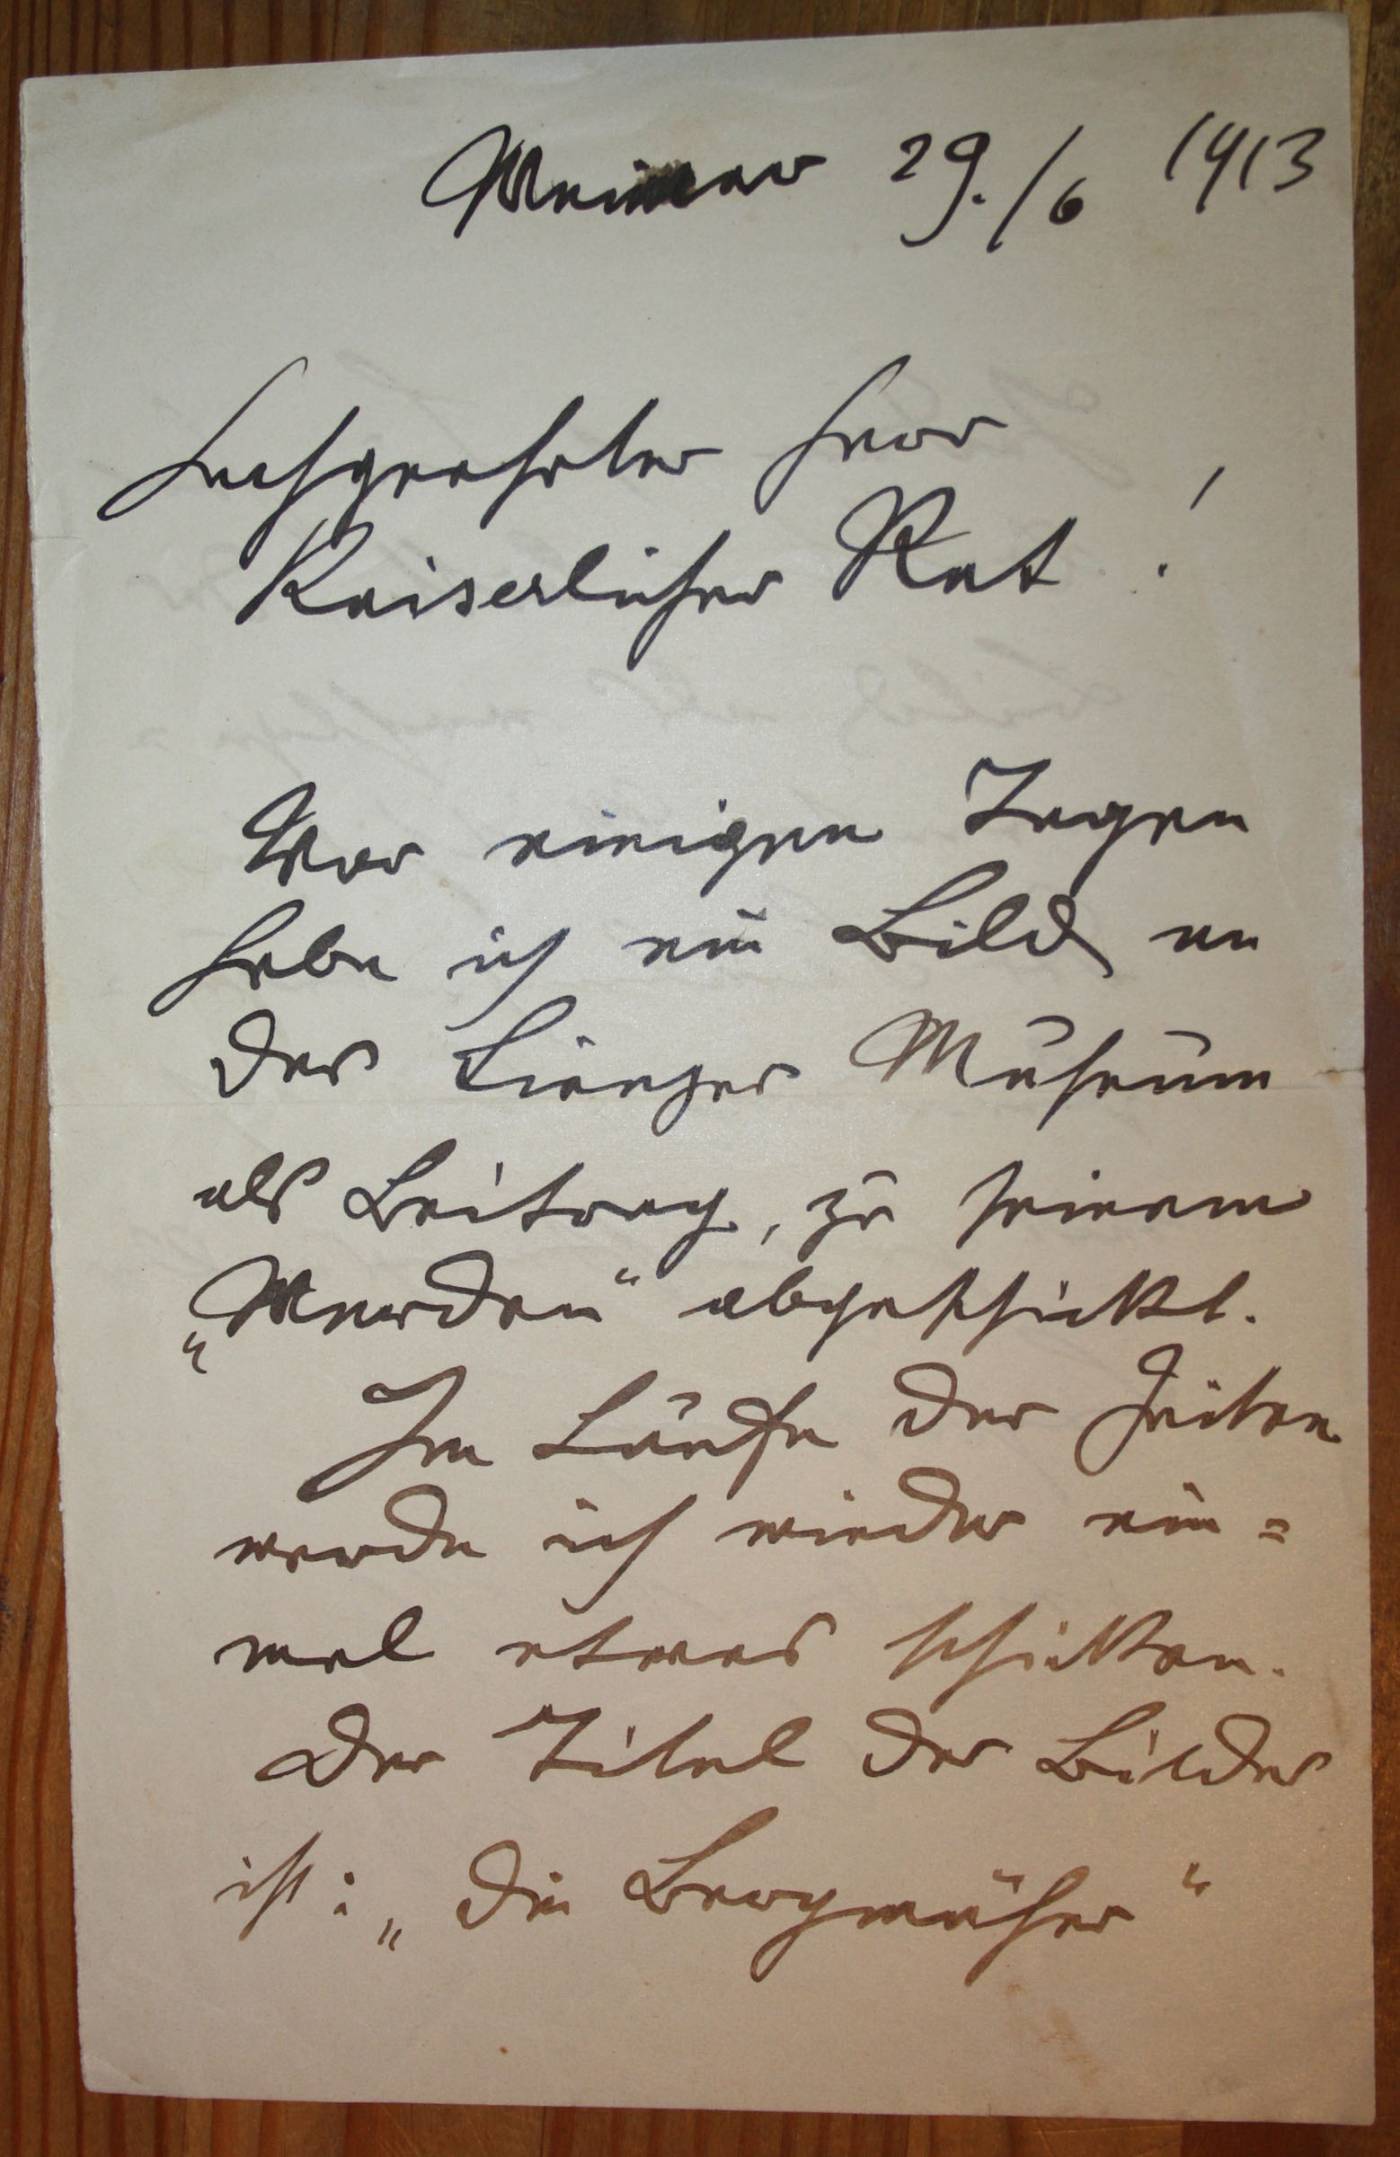 Weimar 29./6 1913
Hochgeehrter Herr
Kaiserlicher Rat !
Vor einigen Tagen
habe ich ein Bild an
das Lienzer Museum
als Beitrag, zu seinem
„Werden“ abgeschickt.
Im Laufe der Zeiten
werde ich wieder ein=
mal etwas schicken.
Der Titel des Bildes
ist: „die Bergmäher“